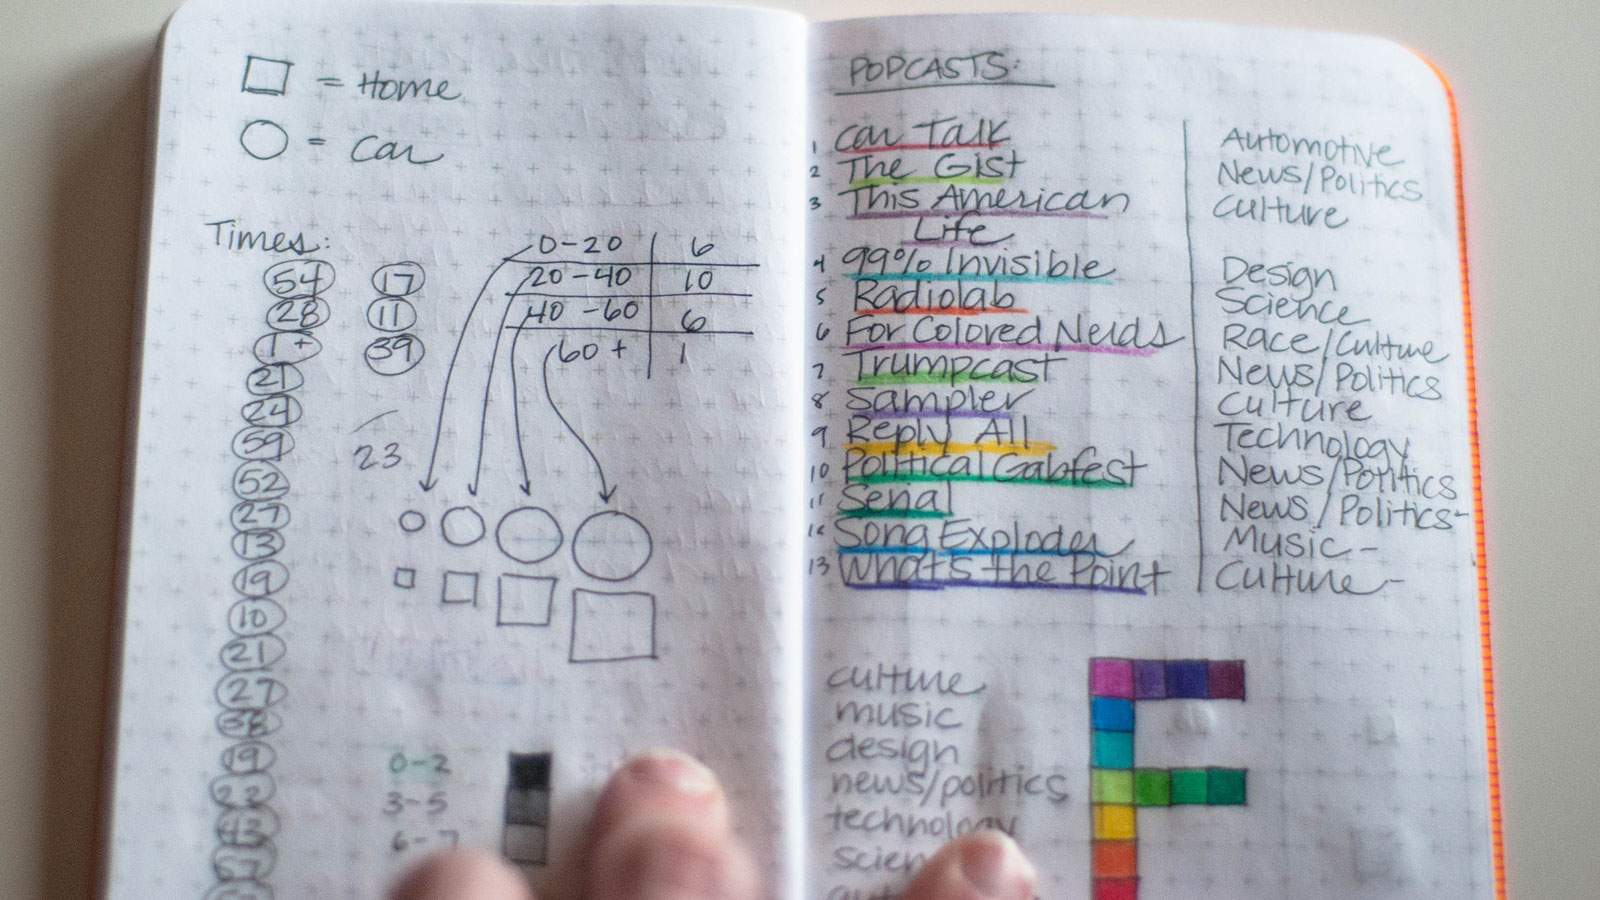 = Home
= Car
Times:
54 17
28 11
39
21
24
59
52
27
13
19
10
21
27
38
19
22
23
0-20 6
20-40 10
40-60 6
60+ 1
0-2
3-5
6-7
PODCASTS:
1 Car Talk Automotive
2 The Gist News/Politics
3 This American Culture
Life
4 99% Invisible Design
5 Radiolab Science
6 For Colored Nerds Race/Culture
7 Trumpcast News/Politics
8 Sampler Culture
9 Reply All Technology
10 Political Gabfest News/Politics
11 Serial News/Politics-
12 Song Exploder Music-
13 What's the Point Culture-
culture
music
design
news/politics
technology